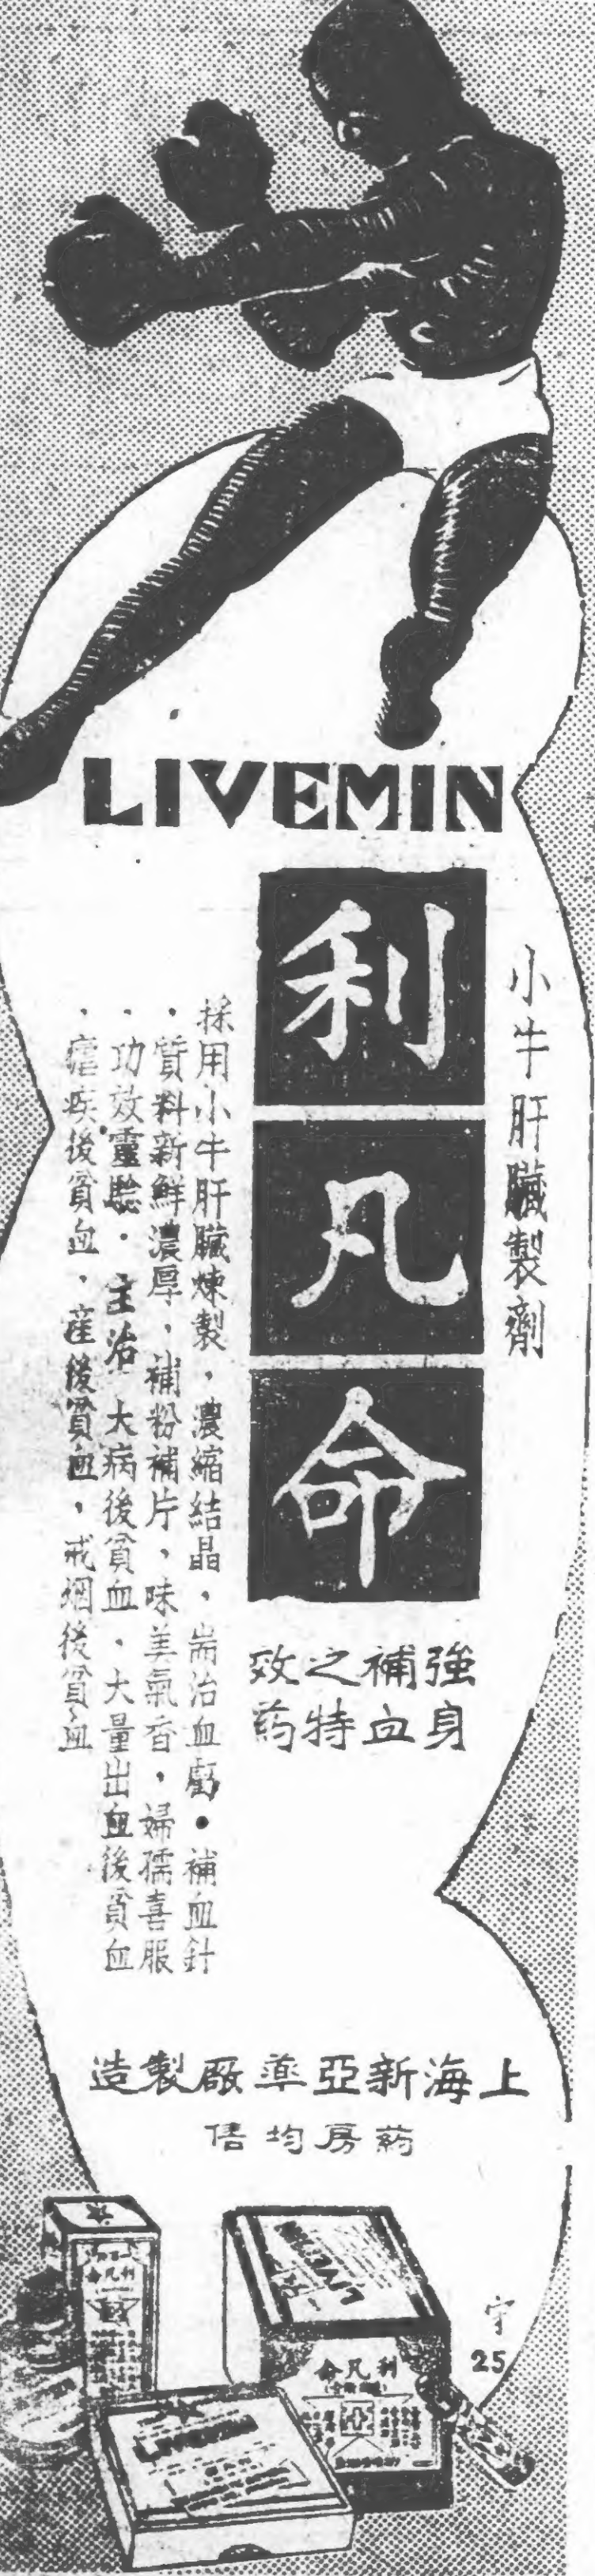 LIVEMIN
小牛肝臟製劑
利凡命
強身
補血
之特
效药
採用小牛肝臟煉製，濃縮結晶，耑治血虧・補血針
，質料新鮮濃厚，補粉補片，味美氣香，婦孺喜服
，功效靈驗・主治 大病後貧血，大量出血後貧血
，瘧疾後貧血，產後貧血，戒烟後貧血
上海新亞藥厰製造
药房均售
利凡命
LIVEMIN
利凡命
LIVEMIN
25